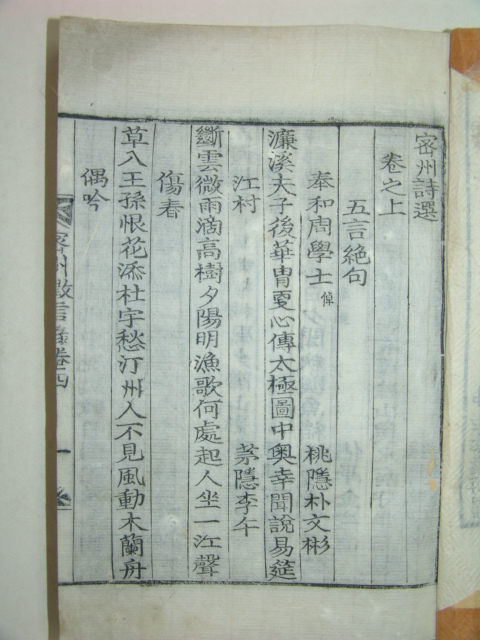 密州詩選
卷之上
五言絶句
奉和周學士 倬 桃隱朴文彬
濂溪夫子後華胄更心傳太極圖中奧幸聞說易筵
江村 茅隱李午
斷雲微雨滴高樹夕陽明漁歌何處起人坐一江聲
傷春
草入王孫恨花添杜宇愁汀州人不見風動木蘭舟
偶吟
密州徵言錄卷四 一